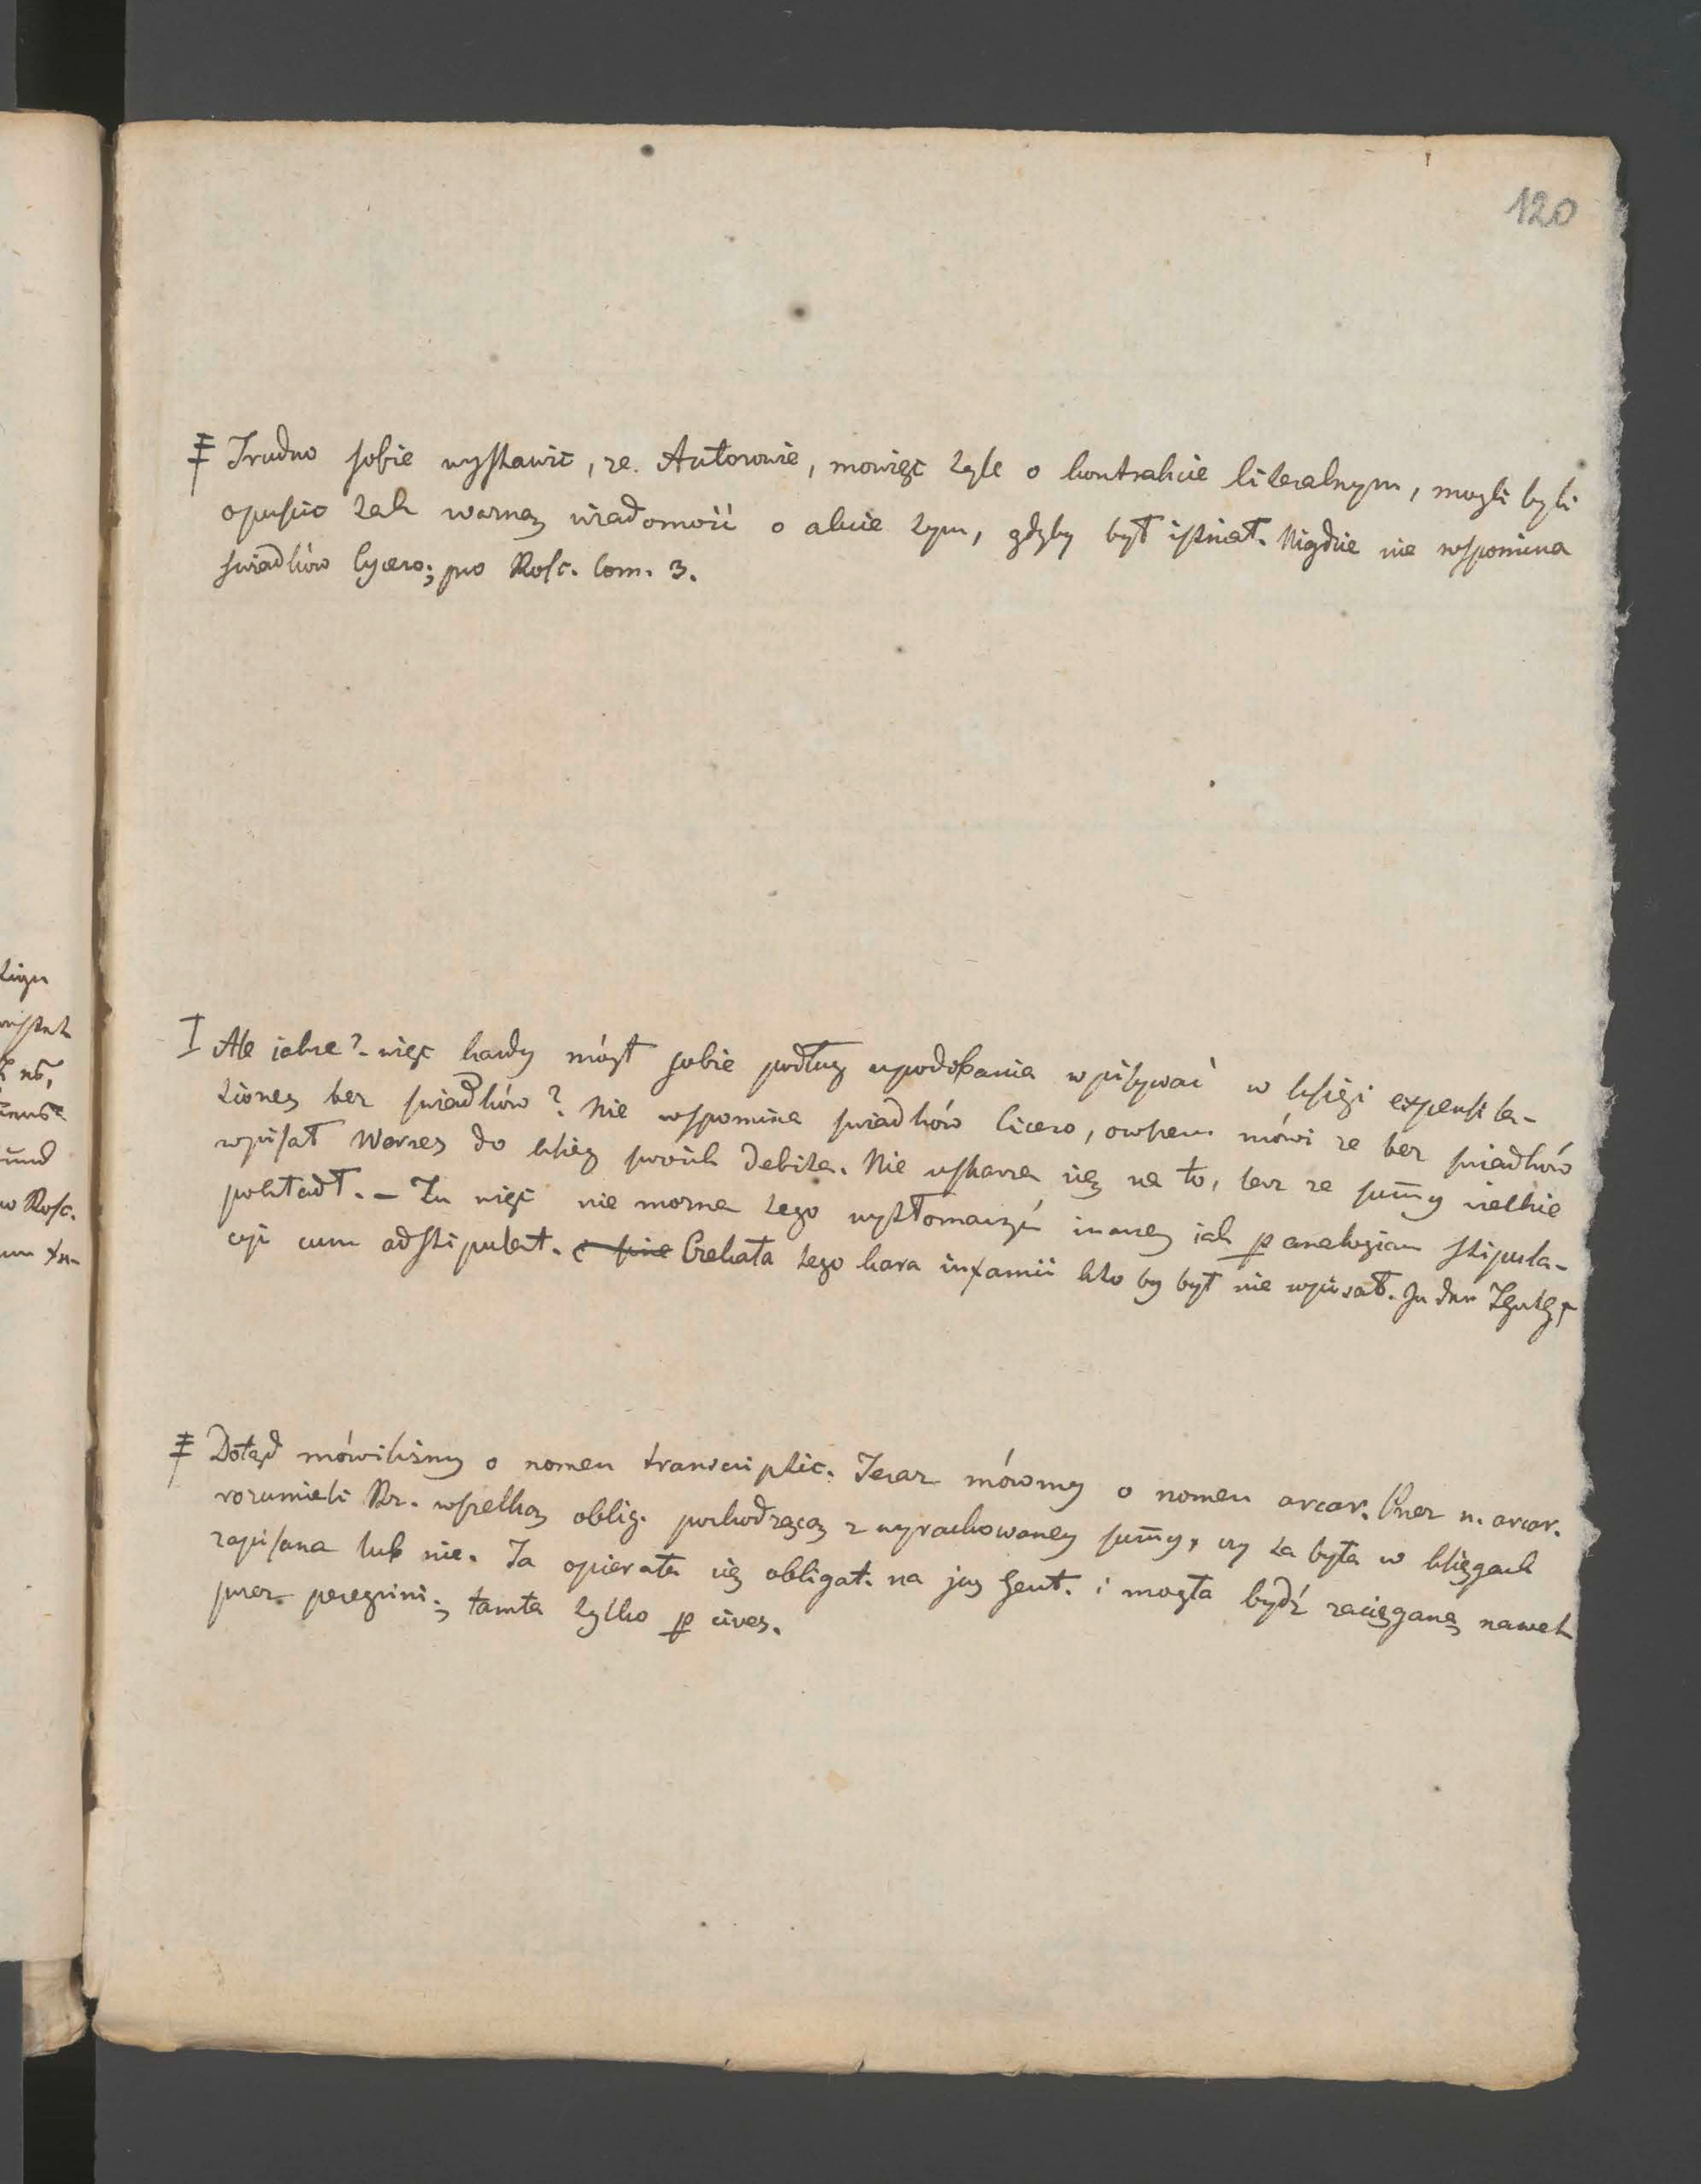 120
Trudno sobie wystawić, że Autorowie, mowiąc tyle o kontrakcie literalnym, mogli byli
opuścić tak ważną wiadomość o akcie tym, gdyby był istniał. Nigdzie nie wspomina
świadków Cycero; pro Rosc. Com. 3.
Ale jakże? więc każdy mógł sobie podług upodobania wpisywać w księgi expensila-
tionez bez świadków? Nie wspomina świadków Cicero, owszem mówi że bez świadków
wpisał Werres do ksiąg swoich debita. Nie uskarża się na to, lecz że sum̄y wielkie
pokładł. – Tu więc nie można tego wytłomaczyć inaczej jak p analogiam stipula-
cyi cum adstipulat. Czekała tego kara infamii kto by był nie wpisał.
Dotąd mówiliśmy o nomen transcriptic. Teraz mówmy o nomen arcar. Przez n. arcar.
rozumieli Rz. wszelką oblig. pochodzącą z wyrachowaney sum̄y, czy ta była w księgach
zapisana lub nie. Ta opierała się obligat. na jus gent. i mogła bydź zaciągana nawet
przez peregrini; tamta tylko p cives.